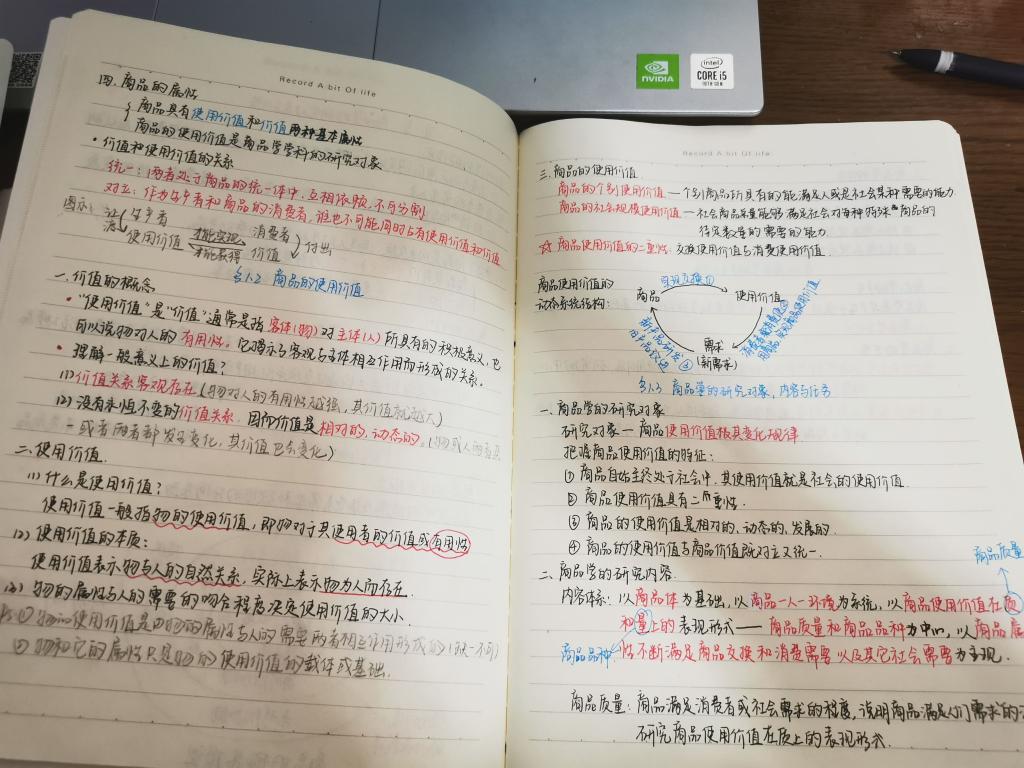 Record A bit Of life
四. 商品的属性
商品具有使用价值和价值两种基本属性
商品的使用价值是商品学学科的研究对象
• 价值和使用价值的关系
统一: 两者处于商品的统一体中, 互相依赖, 不可分割
对立: 作为生产者和商品的消费者, 谁也不可能同时占有使用价值和价值
图示: 生产者 才能实现 消费者
使用价值 才能获得 价值 付出
§1.2 商品的使用价值
一. 价值的概念
• "使用价值"是"价值"通常是指客体(物)对主体(人)所具有的积极意义, 也
可以说物对人的有用性。它揭示与客观与主体相互作用而形成的关系。
• 理解一般意义上的价值?
(1) 价值关系客观存在 (物对人的有用性越强, 其价值就越大)
(2) 没有永恒不变的价值关系. 因而价值是相对的, 动态的。(物或人两者某
一或者两者都发生变化, 其价值也会变化)
二. 使用价值.
(1) 什么是使用价值?
使用价值一般指物的使用价值, 即物对于其使用者的价值或有用性
(2) 使用价值的本质:
使用价值表示物与人的自然关系, 实际上表示物为人而存在.
(3) 物的属性与人的需要的吻合程度决定使用价值的大小.
① 物品使用价值是由物的属性与人的需要两者相互作用形成的 (缺一不可)
② 物和它的属性只是物的使用价值的载体或基础.
NVIDIA
intel
CORE i5
10TH GEN
Record A bit Of life
三. 商品的使用价值
商品的个别使用价值 — 个别商品所具有的能满足人或是社会某种需要的能力.
商品的社会规模使用价值 — 社会商品总量能够满足社会对每种特殊商品的
特定数量的需要的能力.
☆ 商品使用价值的二重性: 交换使用价值与消费使用价值.
商品使用价值的
动态系统结构:
实现交换①
商品 使用价值
需求
(新需求)
§1.3 商品学的研究对象、内容与任务
一. 商品学的研究对象
研究对象 — 商品使用价值极其变化规律
把握商品使用价值的特征:
① 商品自始至终处于社会中, 其使用价值就是社会的使用价值.
② 商品使用价值具有二重性.
③ 商品的使用价值是相对的、动态的、发展的.
④ 商品的使用价值与商品价值既对立又统一.
商品质量
二. 商品学的研究内容.
内容体系: 以商品体为基础, 以商品—人—环境为系统, 以商品使用价值在质
和量上的表现形式 —— 商品质量和商品品种为中心, 以商品属
商品品种 性不断满足商品交换和消费需要以及其它社会需要为主现.
商品质量: 商品满足消费者或社会需求的程度, 说明商品满足人们需求的
研究商品使用价值在质上的表现形式.